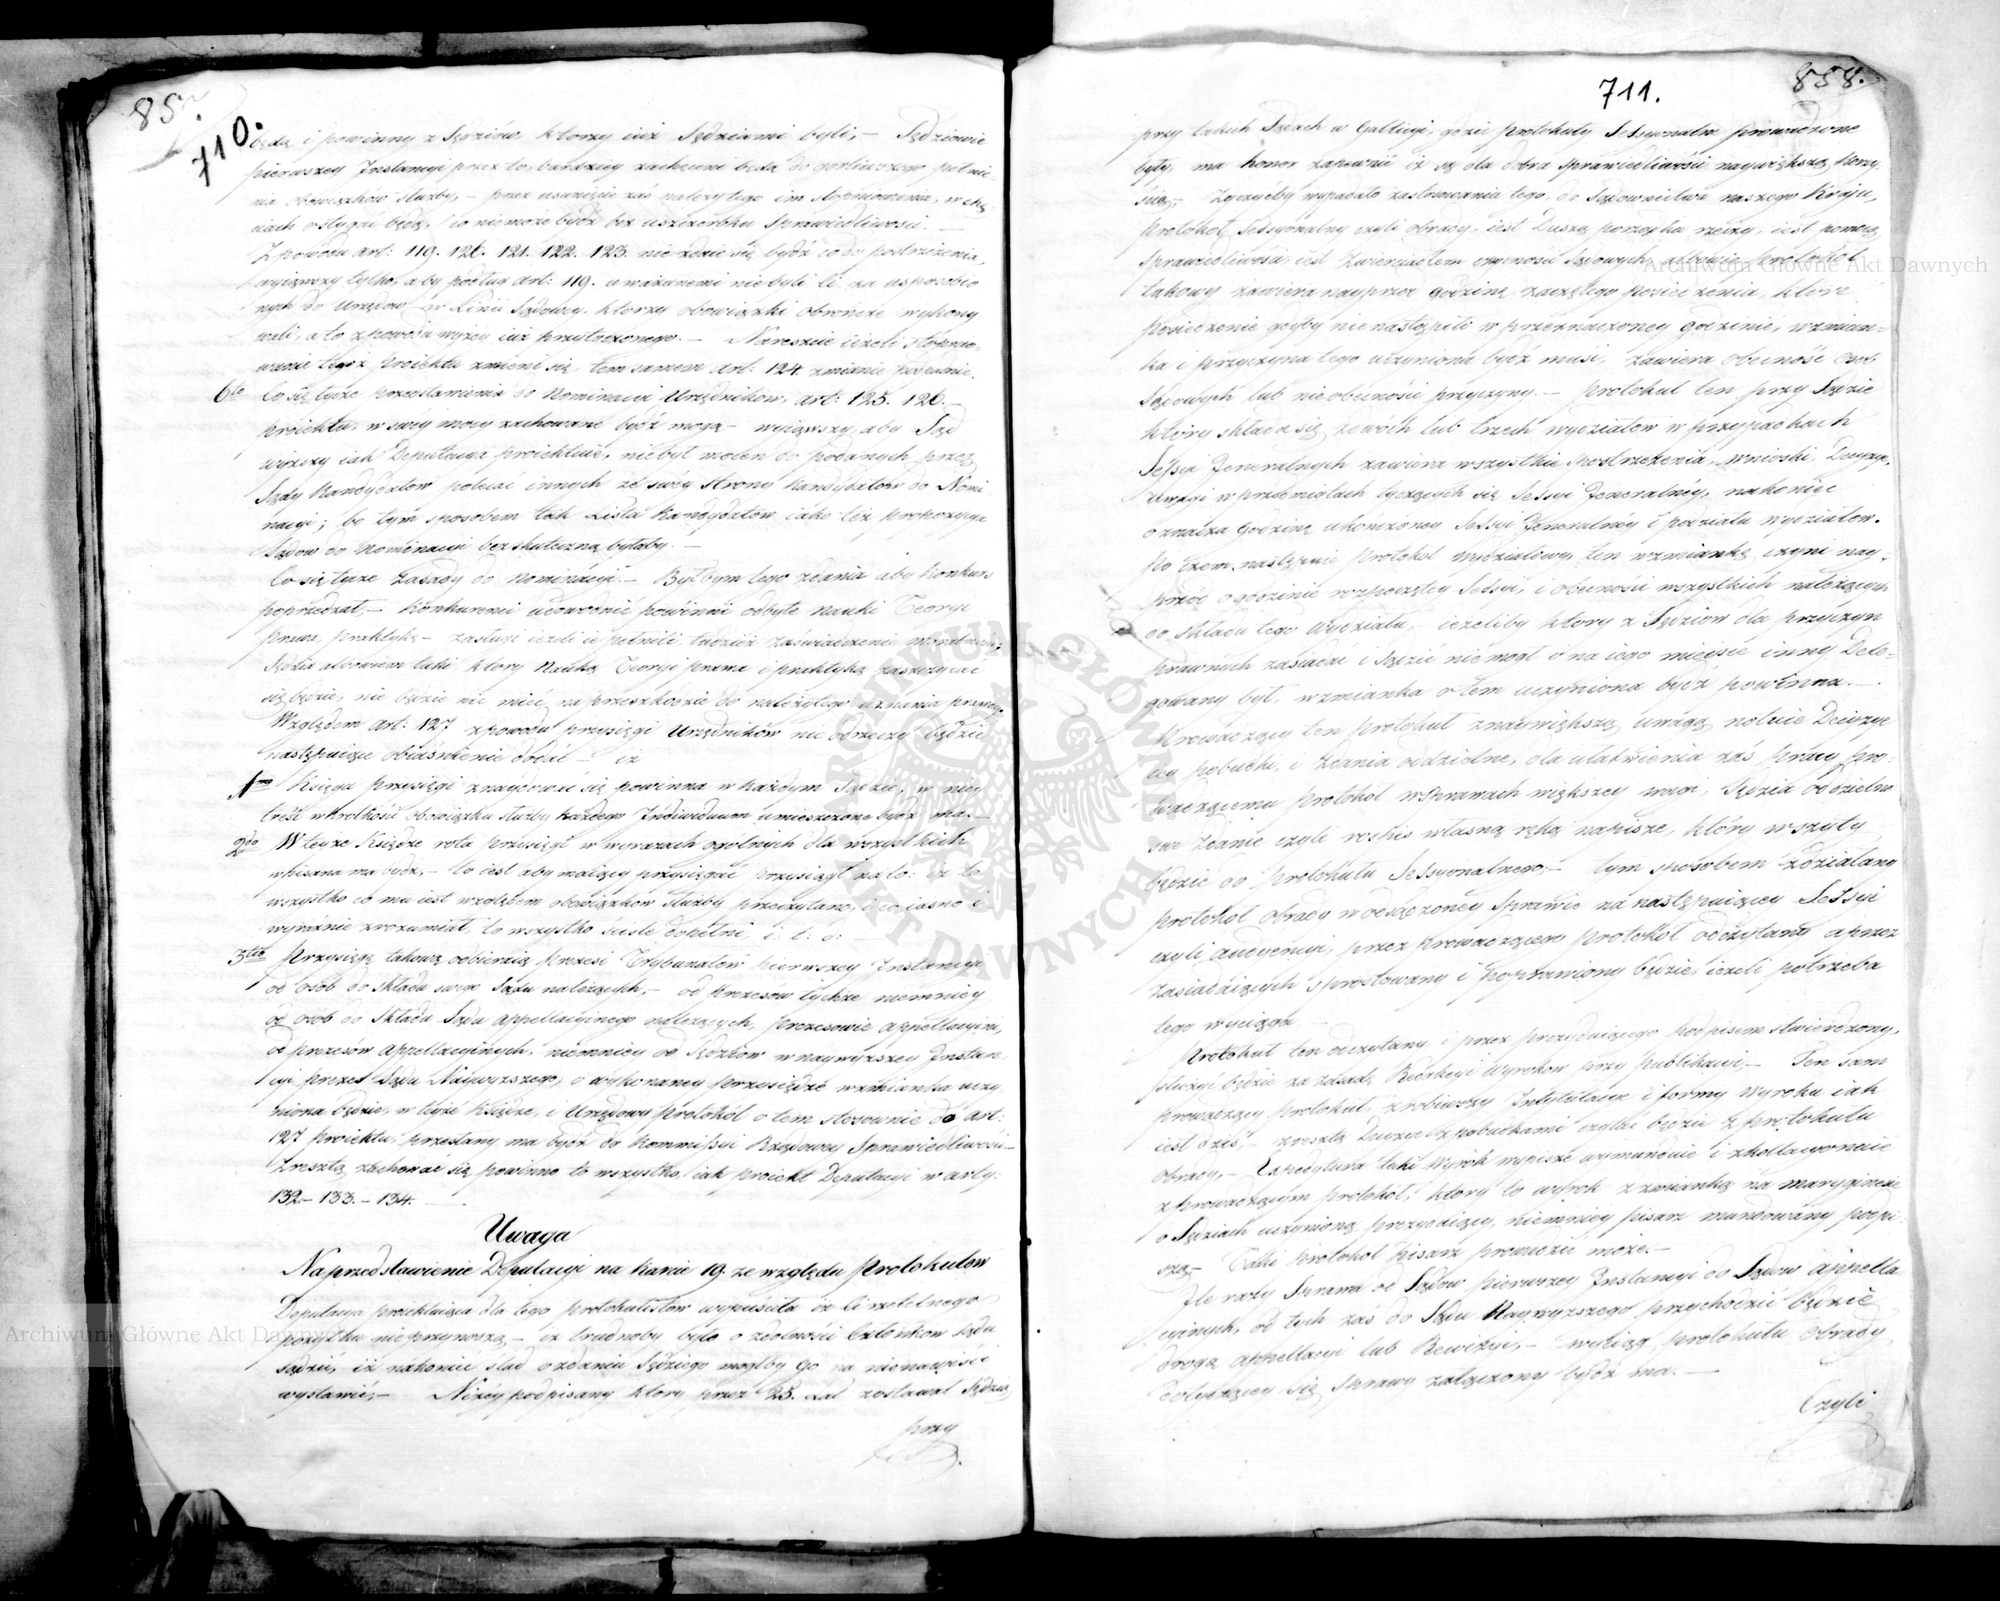 857
710.
będą i powinny z Sędziów, którzy już Sędziami byli, – Sędziowie
pierwszey Instancyi przez to, bardziey zachęceni będą do gorliwszego pełnie
nia obowiązków służby, – przez usunięcie zaś należytego im stopniowania, w chę
ciach ostygać będą, co nie może bydź bez uszczerbku Sprawiedliwości. –
Z powodu art: 119. 120. 121. 122. 123. nie zdaie się bydź co do postrzeżenia,
wyiąwszy tylko, aby podług art: 119. uważanemi nie byli li za usposobio
nych do Urzędów w Linii Sądowey, którzy obowiązki obrończe wykony
wali, a to z powodu wyżey iuż przytoczonego. – Nareszcie ieżeli
wanie tegoż Proiektu zmieni się, tem samem art: 124. zmianie podpadnie.
6to Co się tycze przedstawienia do Nominacyi Urzędników, art: 125. 126. –
proiektu, w swéy mocy zachowane bydź mogą – wyiąwszy aby Sąd
wyższy iak Deputacya proiektuie, nie był mocen do podanych przez
Sądy Kandydatów polecać innych ze swéy strony Kandydatów do Nomi
nacyi; bo tym sposobem tak Lista Kandydatów iako też propozycya
Sądów do Nominacyi bezskuteczną byłaby. –
Co się tycze Zasady do nominacyi. – Byłbym tego zdania aby Konkurs
poprzedzał, – Konkurenci udowodnić powinni odbyte nauki Teoryi
Prawa, praktykę – zasługi ieżeli ie pełnili, tudzież zaświadczenie moralności,
Sędzia albowiem taki, który Nauką Teoryi prawa i praktyką zaszczycać
się będzie, nie będzie nic mieć na przeszkodzie do należytego uznania prawdy.
Względem art: 127 z powodu przysięgi Urzędników nie od rzeczy będzie
następuiące obiaśnienie dodać – iż
1mo Księga przysięgi znaydować się powinna w każdym Sądzie, w niey
treść w krótkości obowiązku służby każdego Individuum umieszczone bydź ma. –
2do W teyże Księdze rota przysięgi w wyrazach ogólnych dla wszystkich
wpisana ma bydź, – to iest aby maiący przysięgać przysiągł na to: iż to
wszystko co mu iest względem obowiązków służby przeczytane, i co iasno i
wyraźnie zrozumiał, to wszystko ściśle dopełni, i. t. d: –
3tio Przysięgę takową odbierzą Prezesi Trybunałów pierwszey Instancyi
od osób do składu swego Sądu należących, – od Prezesów tychże niemniey
od osób do składu Sądu Appellacyinego należących, Prezesowie Appellacyini,
od prezesów Appellacyinych, niemniey od Sędziów w naywyższey Instan
cyi Prezes Sądu Naywyższego, o wykonaney przysiędze wzmianka uczy
niona będzie, w teyże Księdze, i Urzędowy Protokół o tem stosownie do art:
127 proiektu, przesłany ma bydź do Kommissyi Rządowey Sprawiedliwości. –
Zresztą zachować się powinno to wszystko, iak proiekt Deputacyi w arty:
132. – 133. – 134. –
Uwaga
Na przedstawienie Deputacyi na karcie 19. ze względu Protokułów
Deputacya proiektuiąca dla tego protokulistów wypuściła iż li rzetelnego
pożytku nie przynoszą, – iż trudnoby było o zdolności Członków Sądu
sądzić, iż nakoniec ślad o zdaniu Sędziego mógłby go na nienawiść
wystawić, – Niżéy podpisany który przez 25. Lat zostawał Sędzią
przy
711.
858.
przy takich Sądach w Gallicyi, gdzie Protokuły Sessyonalne prowadzone
były, ma honor zapewnić iż są dla dobra Sprawiedliwości naywiększą korzy
ścią, – Życzyćby wypadało zastosowania tego, do Sądownictwa naszego Kraju,
Protokół Sessyonalny czyli obrady, iest Duszą porządku rzeczy, iest pomocą
Sprawiedliwości, iest Zwierciadłem czynności Sądowych, albowiem Protokół
takowy zawiera nayprzód godzinę zaczętego posiedzenia, które
posiedzenie gdyby nienastąpiło w przeznaczoney godzinie, wzmian=
ka i przyczyna tego uczyniona bydź musi, zawiera obecność Osób
Sądowych lub nieobecności przyczyny. – Protokuł ten przy Sądzie
który składa się z dwóch lub trzech wydziałów w przypadkach
Sessyi Jeneralnych zawiera wszystkie spostrzeżenia, wnioski, Decyzye,
Uwagi w przedmiotach tyczących się Sessyi Jeneralnéy, nakoniec
oznacza godzinę ukończoney Sessyi Jeneralnéy i podziału Wydziałów.
Po czem następuie Protokół Wydziałowy, ten wzmiankę czyni nay=
przód o godzinie rozpoczętey Sessyi, i obecności wszystkich należących
do składu tego Wydziału, – ieżeliby który z Sędziów dla przyczyn
prawnych zasiadać i Sądzić niemógł i na iego mieysce inny Dele=
gowany był, wzmianka o tem uczyniona bydź powinna. –
Prowadzący ten Protokuł z naywiększą uwagą notuie Decyzye
iey pobudki, i zdania oddzielne, dla ułatwienia zaś pracy pro=
wadzącemu Protokół w Sprawach większey wagi, Sędzia oddzielno
swe Zdanie czyli rozpis własną ręką napisze, który wszyty
będzie do Protokółu Sessyonalnego. – tym sposobem zdziałany
protokół obrady w osądzoney Sprawie na następuiącey Sessyi
czyli audyencyi, przez prowadzącego Protokół odczytany a przez
zasiadaiących sprostowany i poprawiony będzie, ieżeli potrzeba
tego wyciąga –
Protokuł ten odczytany i przez prezyduiącego podpisem stwierdzony,
służyć będzie za zasadę Redakcyi Wyroków przy Publikacyi. – Ten sam
prowadzący Protokuł, zrobiwszy i formy Wyroku iak
iest dziś, – zresztą Decyzye z pobudkami czytać będzie z protokułu
obrady, – Expedytura taki Wyrok wypisze wymunduie i zkollacyonuie
z prowadzącym protokół, który to wyrok z wzmianką na marginesie
o Sędziach uczynioną prezyduiący, niemniey Pisarz mundowany podpi
szą. – Taki Protokół Pisarz prowadzić może. –
Ile razy Sprawa od Sądów pierwszey Instancyi do Sądów Appella
cyinych, od tych zaś do Sądu Naywyższego przychodzić będzie
drogą Appellacyi lub Rewizyi, – wyciąg protokułu Obrady,
dotyczący się Sprawy załączony bydź ma. –
Czyli
Archiwum Główne Akt Dawnych
Archiwum Główne Akt Dawnych
ARCHIWUM GŁÓWNE AKT DAWNYCH